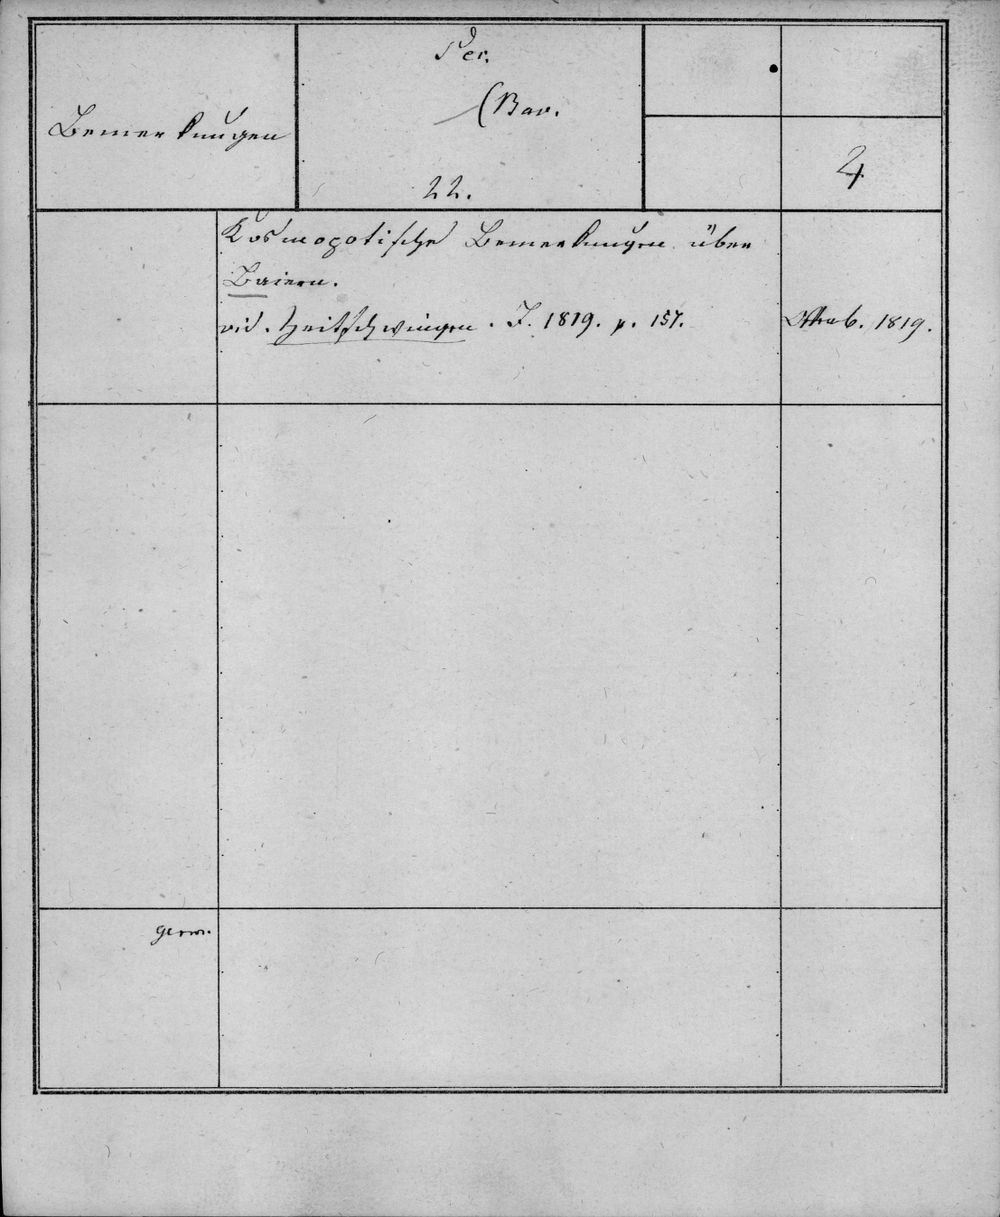 Bemerkungen
Per.
(Bav.
22.
4
Kosmopotische Bemerkungen über
Baiern.
vid. Zeitschwingen. J. 1819. p. 157.
1819.
germ.